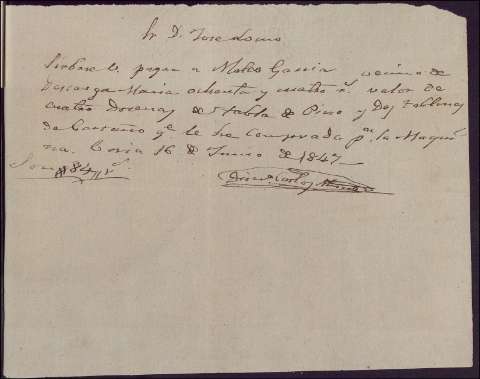 Sr D. Jose Lomo
Sirbase V. pagar a Mateo Garcia vecino de
Descarga Maria ochenta y cuatro r.s valor de
cuatro Docenas de tabla de Pino y Dos tablones
de Castaño q.e le he comprado p.a la Maqui
na. Coria 16 de Junio de 1847
Son 84 r.s
Carlos